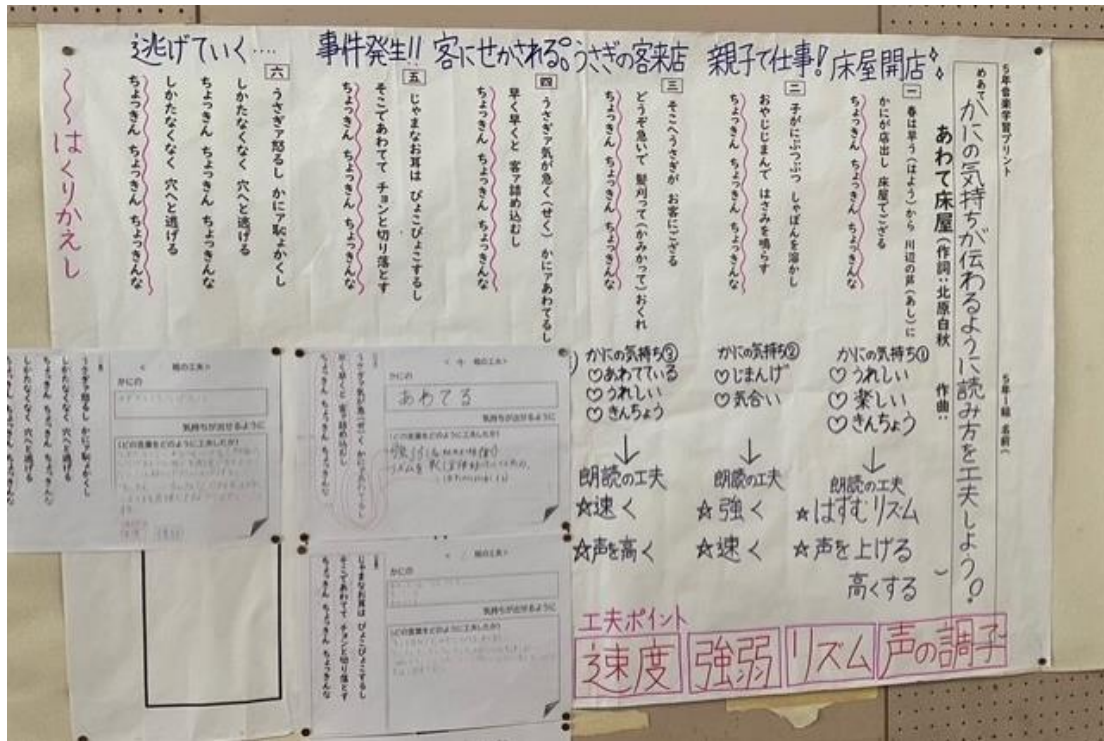 5年音楽学習プリント
5年1組 名前(
)
めあて かにの気持ちが伝わるように読み方を工夫しよう。
あわて床屋(作詞:北原白秋 作曲:
床屋開店
親子で仕事!
うさぎの客来店
客にせかされる。
事件発生!!
逃げていく‥‥
一 春は早う(はよう)から 川辺の葦(あし)に
かにが店出し 床屋でござる
ちょっきん ちょっきん ちょっきんな
二 子がにぶつぶつ しゃぼんを溶かし
おやじじまんで はさみを鳴らす
ちょっきん ちょっきん ちょっきんな
三 そこへうさぎが お客にござる
どうぞ急いで 髪刈って(かみかって)おくれ
ちょっきん ちょっきん ちょっきんな
四 うさぎァ気が急く(せく) かにァあわてるし
早く早くと 客ァ詰め込むし
ちょっきん ちょっきん ちょっきんな
五 じゃまなお耳は ぴょこぴょこするし
そこであわてて チョンと切り落とす
ちょっきん ちょっきん ちょっきんな
六 うさぎァ怒るし かにァ恥よかくし
しかたなくなく 穴へと逃げる
ちょっきん ちょっきん ちょっきんな
しかたなくなく 穴へと逃げる
ちょっきん ちょっきん ちょっきんな
はくりかえし
かにの気持ち①
♡うれしい
♡楽しい
♡きんちょう
朗読の工夫
☆はずむリズム
☆声を上げる
高くする
かにの気持ち②
♡じまんげ
♡気合い
朗読の工夫
☆強く
☆速く
かにの気持ち③
♡あわてている
♡うれしい
♡きんちょう
朗読の工夫
☆速く
☆声を高く
工夫ポイント
速度
強弱
リズム
声の調子
うさぎァ気が急(せ)く かにァあわてるし
早く早くと 客ァ詰め込むし
ちょっきん ちょっきん ちょっきんな
組の工夫>
かにの
あわてる
気持ちが出せるように
(どの言葉をどのように工夫したか)
じゃまなお耳は ぴょこぴょこするし
そこであわてて チョンと切り落とす
ちょっきん ちょっきん ちょっきんな
組の工夫>
かにの
気持ちが出せるように
(どの言葉をどのように工夫したか)
うさぎァ怒るし かにァ恥よかくし
しかたなくなく 穴へと逃げる
ちょっきん ちょっきん ちょっきんな
しかたなくなく 穴へと逃げる
組の工夫>
かにの
気持ちが出せるように
(どの言葉をどのように工夫したか)